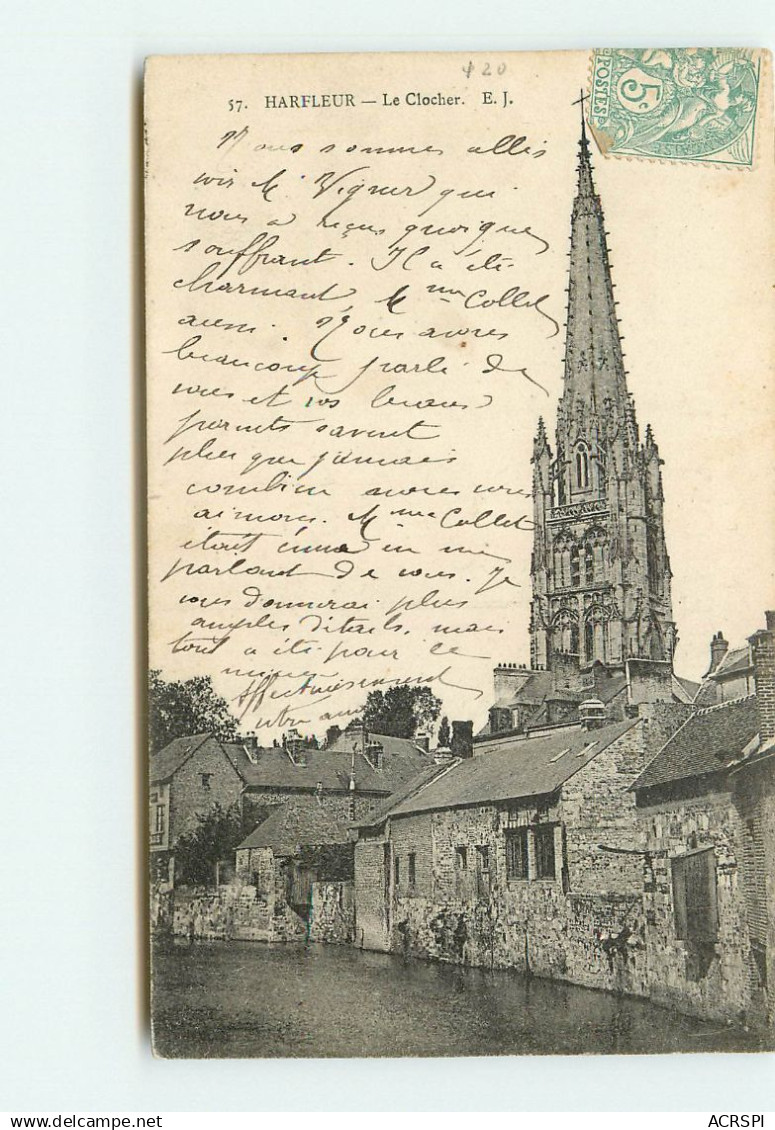 57. HARFLEUR — Le Clocher. E. J.
POSTES
5c
$20
Nous sommes allés
voir M. Vigner qui
nous a reçus quoique
souffrant. Il a été
charmant, Mme Collet
aussi. Nous avons
beaucoup parlé de
vous et vos beaux
parents savent
plus que jamais
combien nous vous
aimons. Mme Collet
était émue en me
parlant de vous. Je
vous donnerai plus
amples détails, mais
tout a été pour le
mieux
affectueusement
votre
ACRSPI